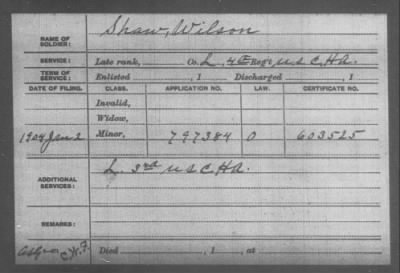 NAME OF SOLDIER: Shaw, Wilson
SERVICE: Late rank, Co. L, 4th Reg't U S C, H A.
TERM OF SERVICE: Enlisted , 1 Discharged , 1
DATE OF FILING. CLASS. APPLICATION NO. LAW. CERTIFICATE NO.
Invalid,
Widow,
1904 Jan 2 Minor, 797384 O 603525
ADDITIONAL SERVICES: L. 3rd U S C H A.
REMARKS:
C.W.F. Died , 1 , at